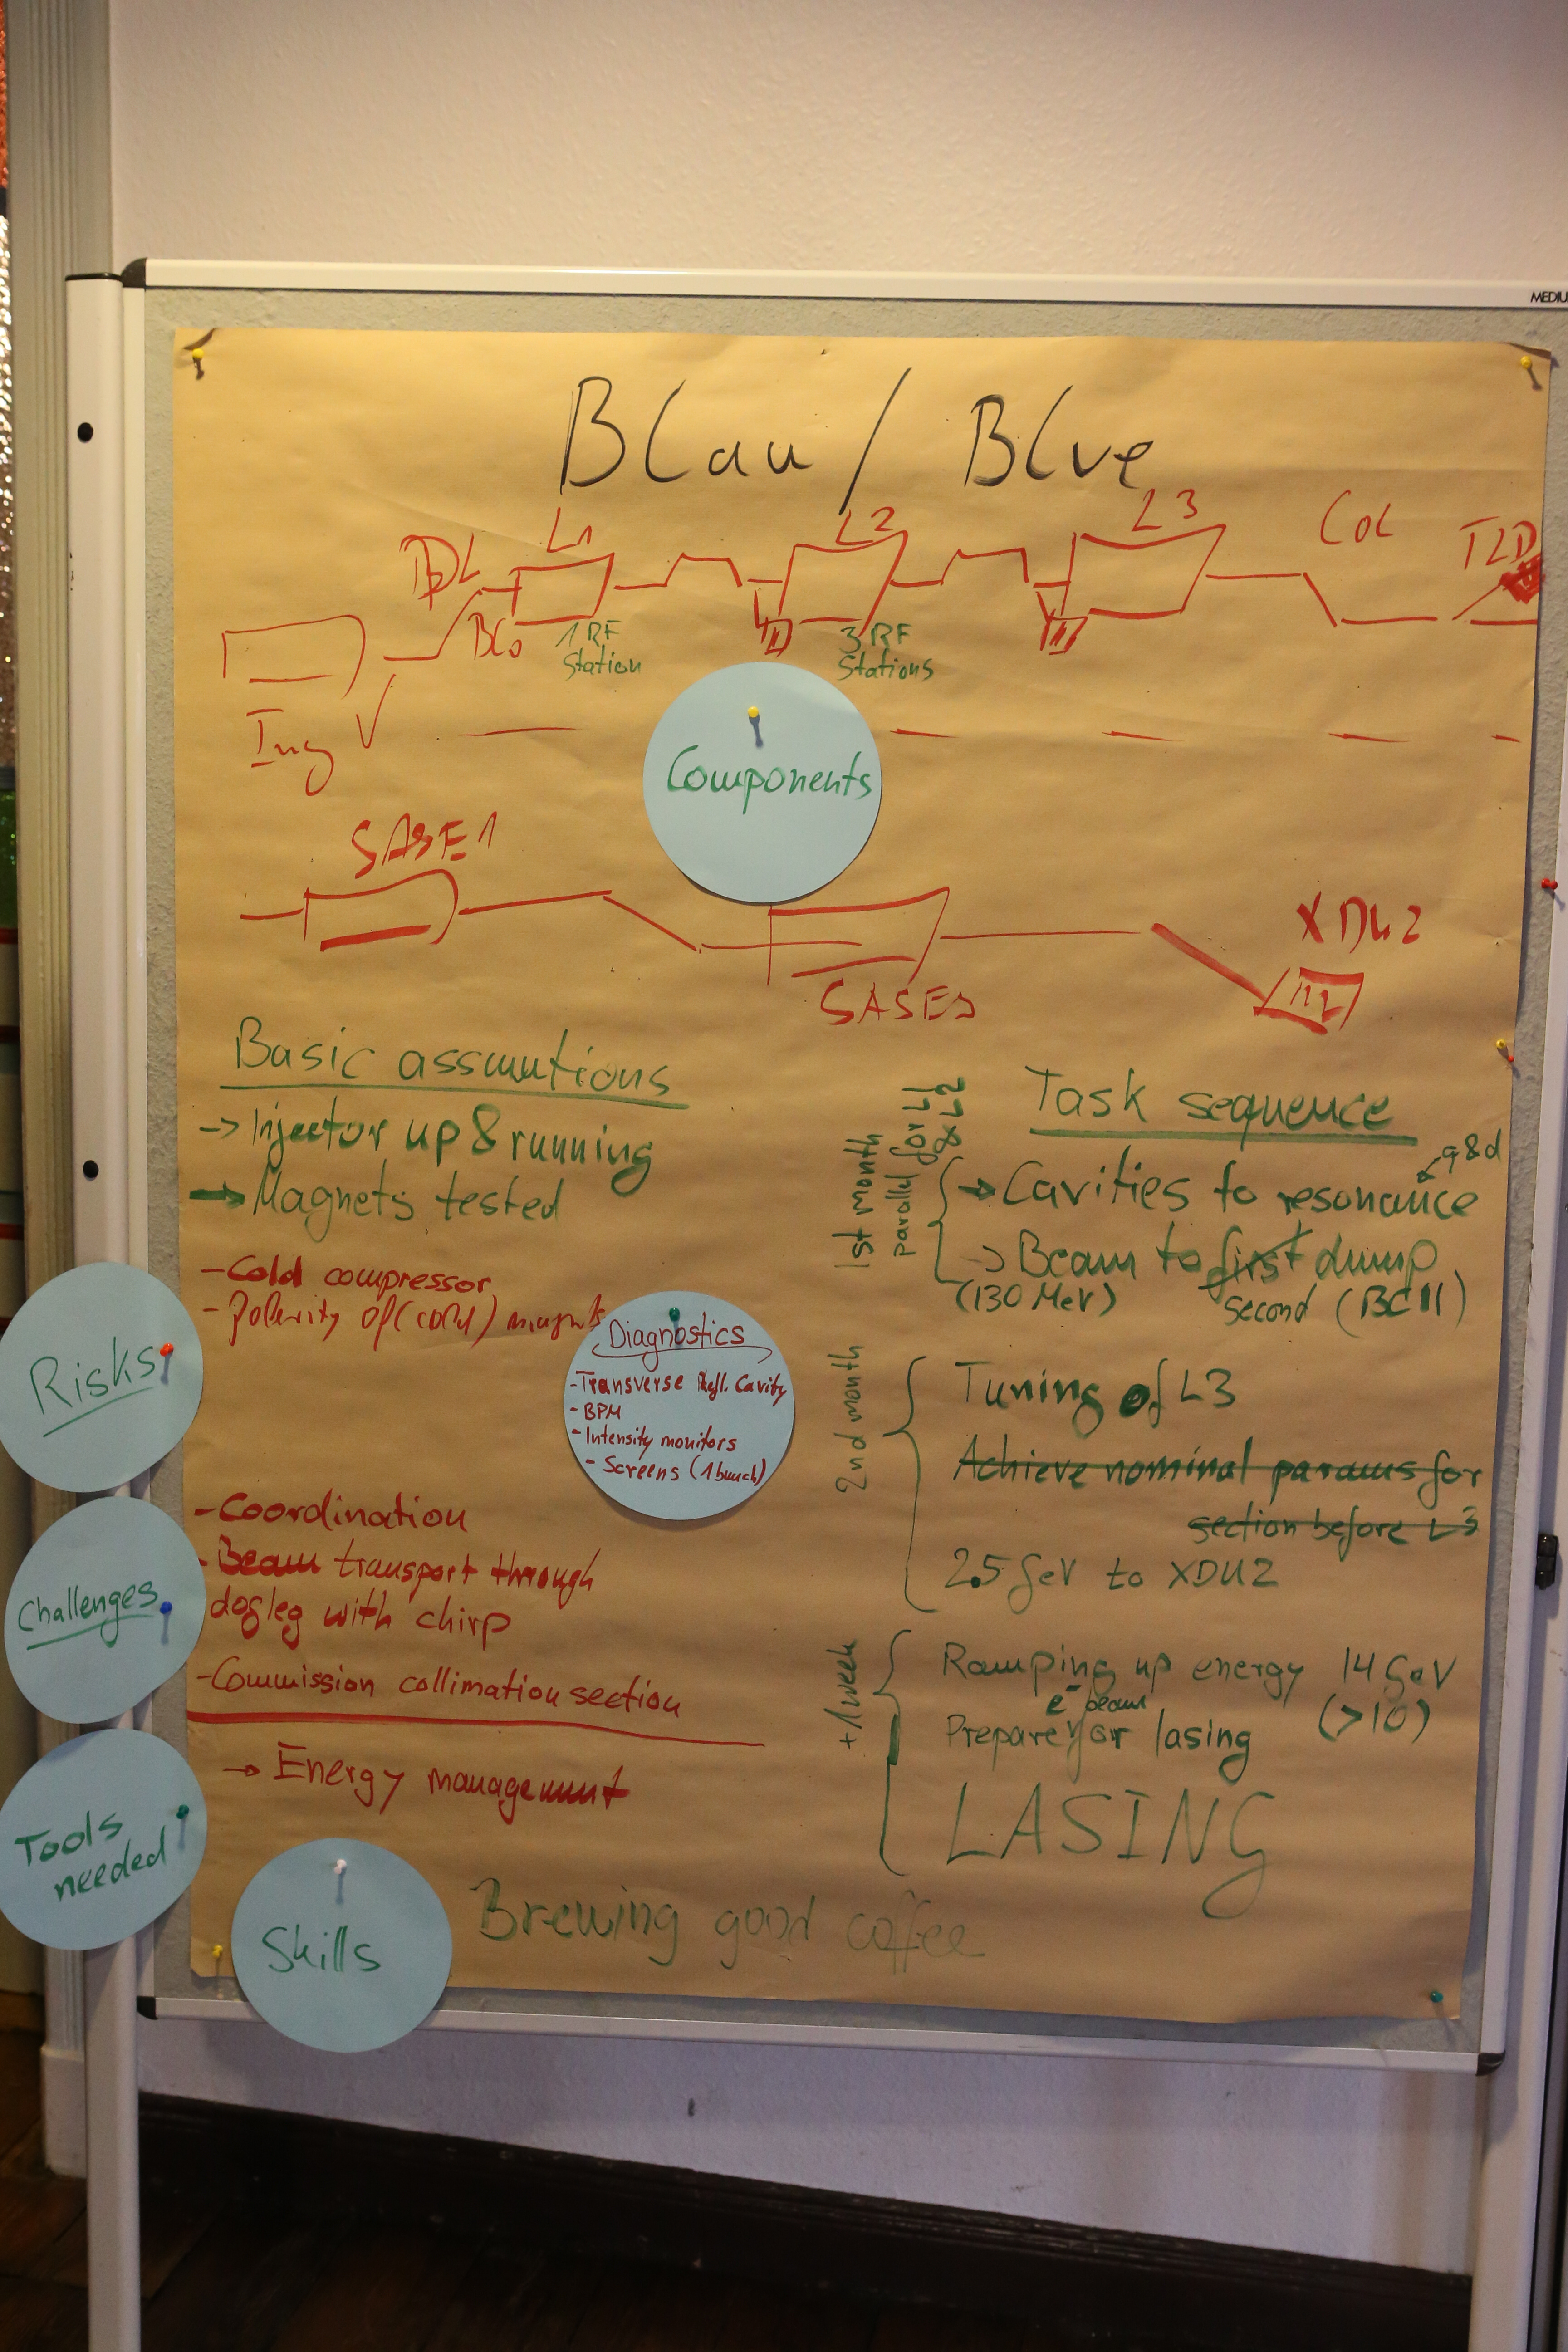 MEDIU
Blau / Blue
L1
L2
L3
COL
TLD
BC0
1 RF
Station
3 RF
Stations
Components
SASE1
SASE3
Basic assumtions
-> Injector up & running
-> Magnets tested
- Cold compressor
- Polarity of (cold) magnets
Risks
Diagnostics
- Transverse Defl. Cavity
- BPM
- Intensity monitors
- Screens (1 bunch)
- Coordination
- Beam transport through
dogleg with chirp
- Commission collimation section
Challenges
-> Energy management
Tools
needed
Skills
Brewing good coffee
Task sequence
1st month
parallel for L1
& L2
q&d
-> Cavities to resonance
-> Beam to first dump
(130 MeV) second (BC II)
2nd month
Tuning of L3
Achieve nominal params for
section before L3
2.5 GeV to XDU2
+1 week
Ramping up energy 14 GeV
(>10)
e- beam
Prepare for lasing
LASING